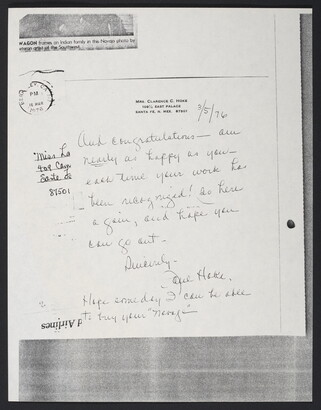 WAGON frames an Indian family in the Navajo photo by
artist of the Southwest.
PM
MRS. CLARENCE C. HOKE
109½ EAST PALACE
SANTA FE, N. MEX. 87501
3/5/76
And congratulations - am
nearly as happy as you
each time your work has
been recognized! As here
again, and hope you
can go out -
Sincerely -
Hoke.
Hope someday I can be able
to buy your "Navajo"
Miss
409
Santa
87501
Airlines